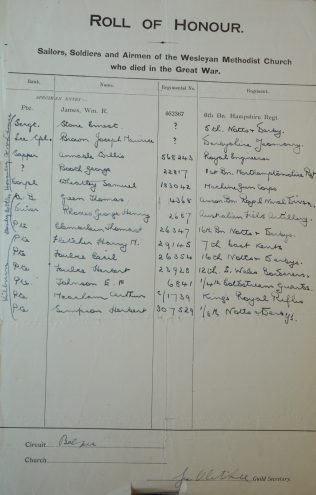 ROLL OF HONOUR.
Sailors, Soldiers and Airmen of the Wesleyan Methodist Church
who died in the Great War.
Rank. Name. Regimental No. Regiment.
SPECIMEN ENTRY:—
Pte. James, Wm. R. 462367 6th Bn. Hampshire Regt.
Sergt. Stone Ernest ? 5th. Notts & Derby.
Lce Cpl. Brown Joseph Maurice ? Derbyshire Yeomanry
Sapper Annable 568243 Royal Engineers
? Booth George 22817 1st Bn. Northamptonshire Regt
Corpl Wheatley Samuel 183042 Machine Gun Corps
A.B. Green Thomas 4368 Bn Royal Naval Divn.
Driver George Henry 2687 Australian Field Artillery.
Pte Thomas 26347 16th Bn. Notts & Derbys.
Pte Fletcher Henry M. 29145 7th East Kents
Pte Foulke Cecil 26354 16th Notts & Derbys.
Pte Foulke Herbert 23928 12th S. Wales Borderers.
Pte Johnson E. 6841 1/4th Coldstream Guards.
Pte Arthur C/1739 Kings Royal Rifles
Pte Simpson Herbert 307529 1/8th Notts & Derbys.
Kilburn
Circuit Belper
Church
Guild Secretary.